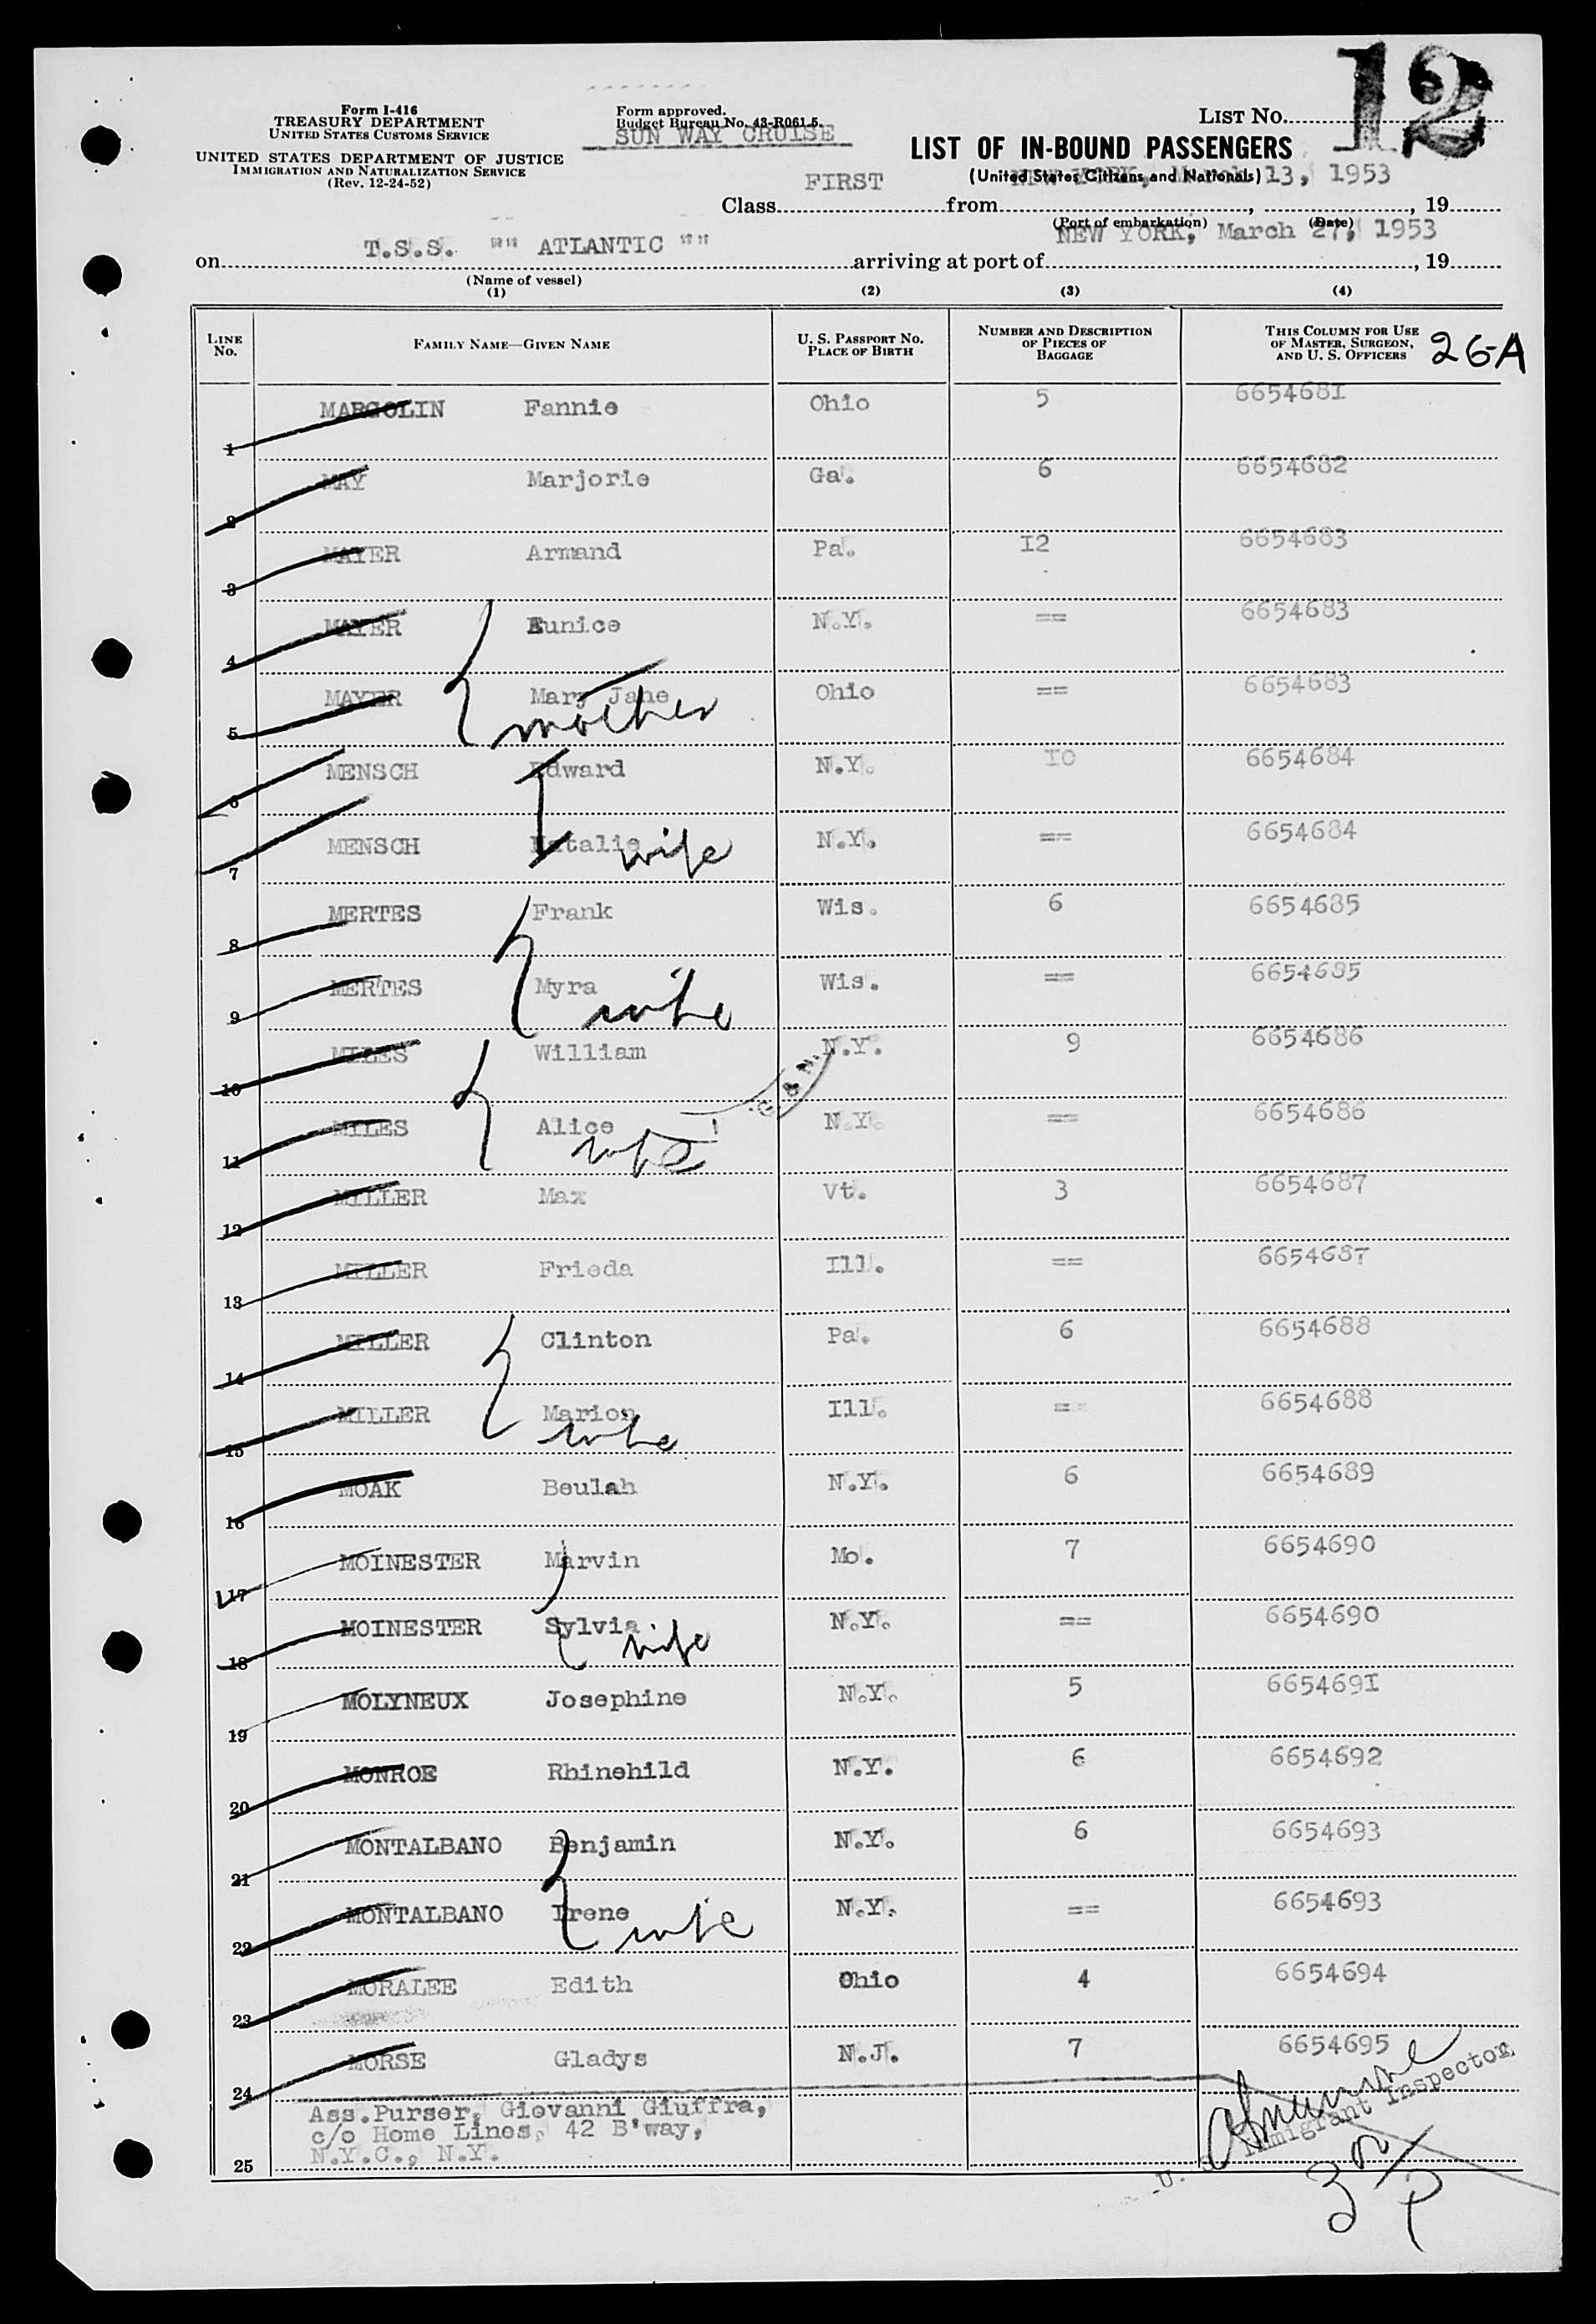 12
Form I-416
TREASURY DEPARTMENT
UNITED STATES CUSTOMS SERVICE
UNITED STATES DEPARTMENT OF JUSTICE
IMMIGRATION AND NATURALIZATION SERVICE
(Rev. 12-24-52)
Form approved.
Budget Bureau No. 43-R061.5.
SUN WAY CRUISE
LIST NO.
LIST OF IN-BOUND PASSENGERS
(United States Citizens and Nationals)
NEW YORK, March 13, 1953
FIRST
Class from , , 19
(Port of embarkation) (Date)
NEW YORK, March 27, 1953
T.S.S. "" ATLANTIC ""
on arriving at port of , 19
(Name of vessel)
(1) (2) (3) (4)
LINE No. FAMILY NAME—GIVEN NAME U. S. PASSPORT NO. PLACE OF BIRTH NUMBER AND DESCRIPTION OF PIECES OF BAGGAGE THIS COLUMN FOR USE OF MASTER, SURGEON, AND U. S. OFFICERS 26-A
1 MARGOLIN Fannie Ohio 5 6654681
2 MAY Marjorie Ga. 6 6654682
3 MAYER Armand Pa. 12 6654683
4 MAYER Eunice N.Y. == 6654683
5 MAYER Mary Jane Ohio == 6654683
mother
6 MENSCH Edward N.Y. 10 6654684
7 MENSCH Natalie wife N.Y. == 6654684
8 MERTES Frank Wis. 6 6654685
9 MERTES Myra Wis. == 6654685
wife
10 MILES William N.Y. 9 6654686
11 MILES Alice N.Y. == 6654686
wife
12 MILLER Max Vt. 3 6654687
13 MILLER Frieda Ill. == 6654687
14 MILLER Clinton Pa. 6 6654688
15 MILLER Marion Ill. == 6654688
wife
16 MOAK Beulah N.Y. 6 6654689
17 MOINESTER Marvin Mo. 7 6654690
18 MOINESTER Sylvia wife N.Y. == 6654690
19 MOLYNEUX Josephine N.Y. 5 6654691
20 MONROE Rhinehild N.Y. 6 6654692
21 MONTALBANO Benjamin N.Y. 6 6654693
22 MONTALBANO Irene wife N.Y. == 6654693
23 MORALEE Edith Ohio 4 6654694
24 MORSE Gladys N.J. 7 6654695
Ass.Purser, Giovanni Giuffra,
c/o Home Lines, 42 B'way,
N.Y.C., N.Y.
25
U. S. Immigrant Inspector